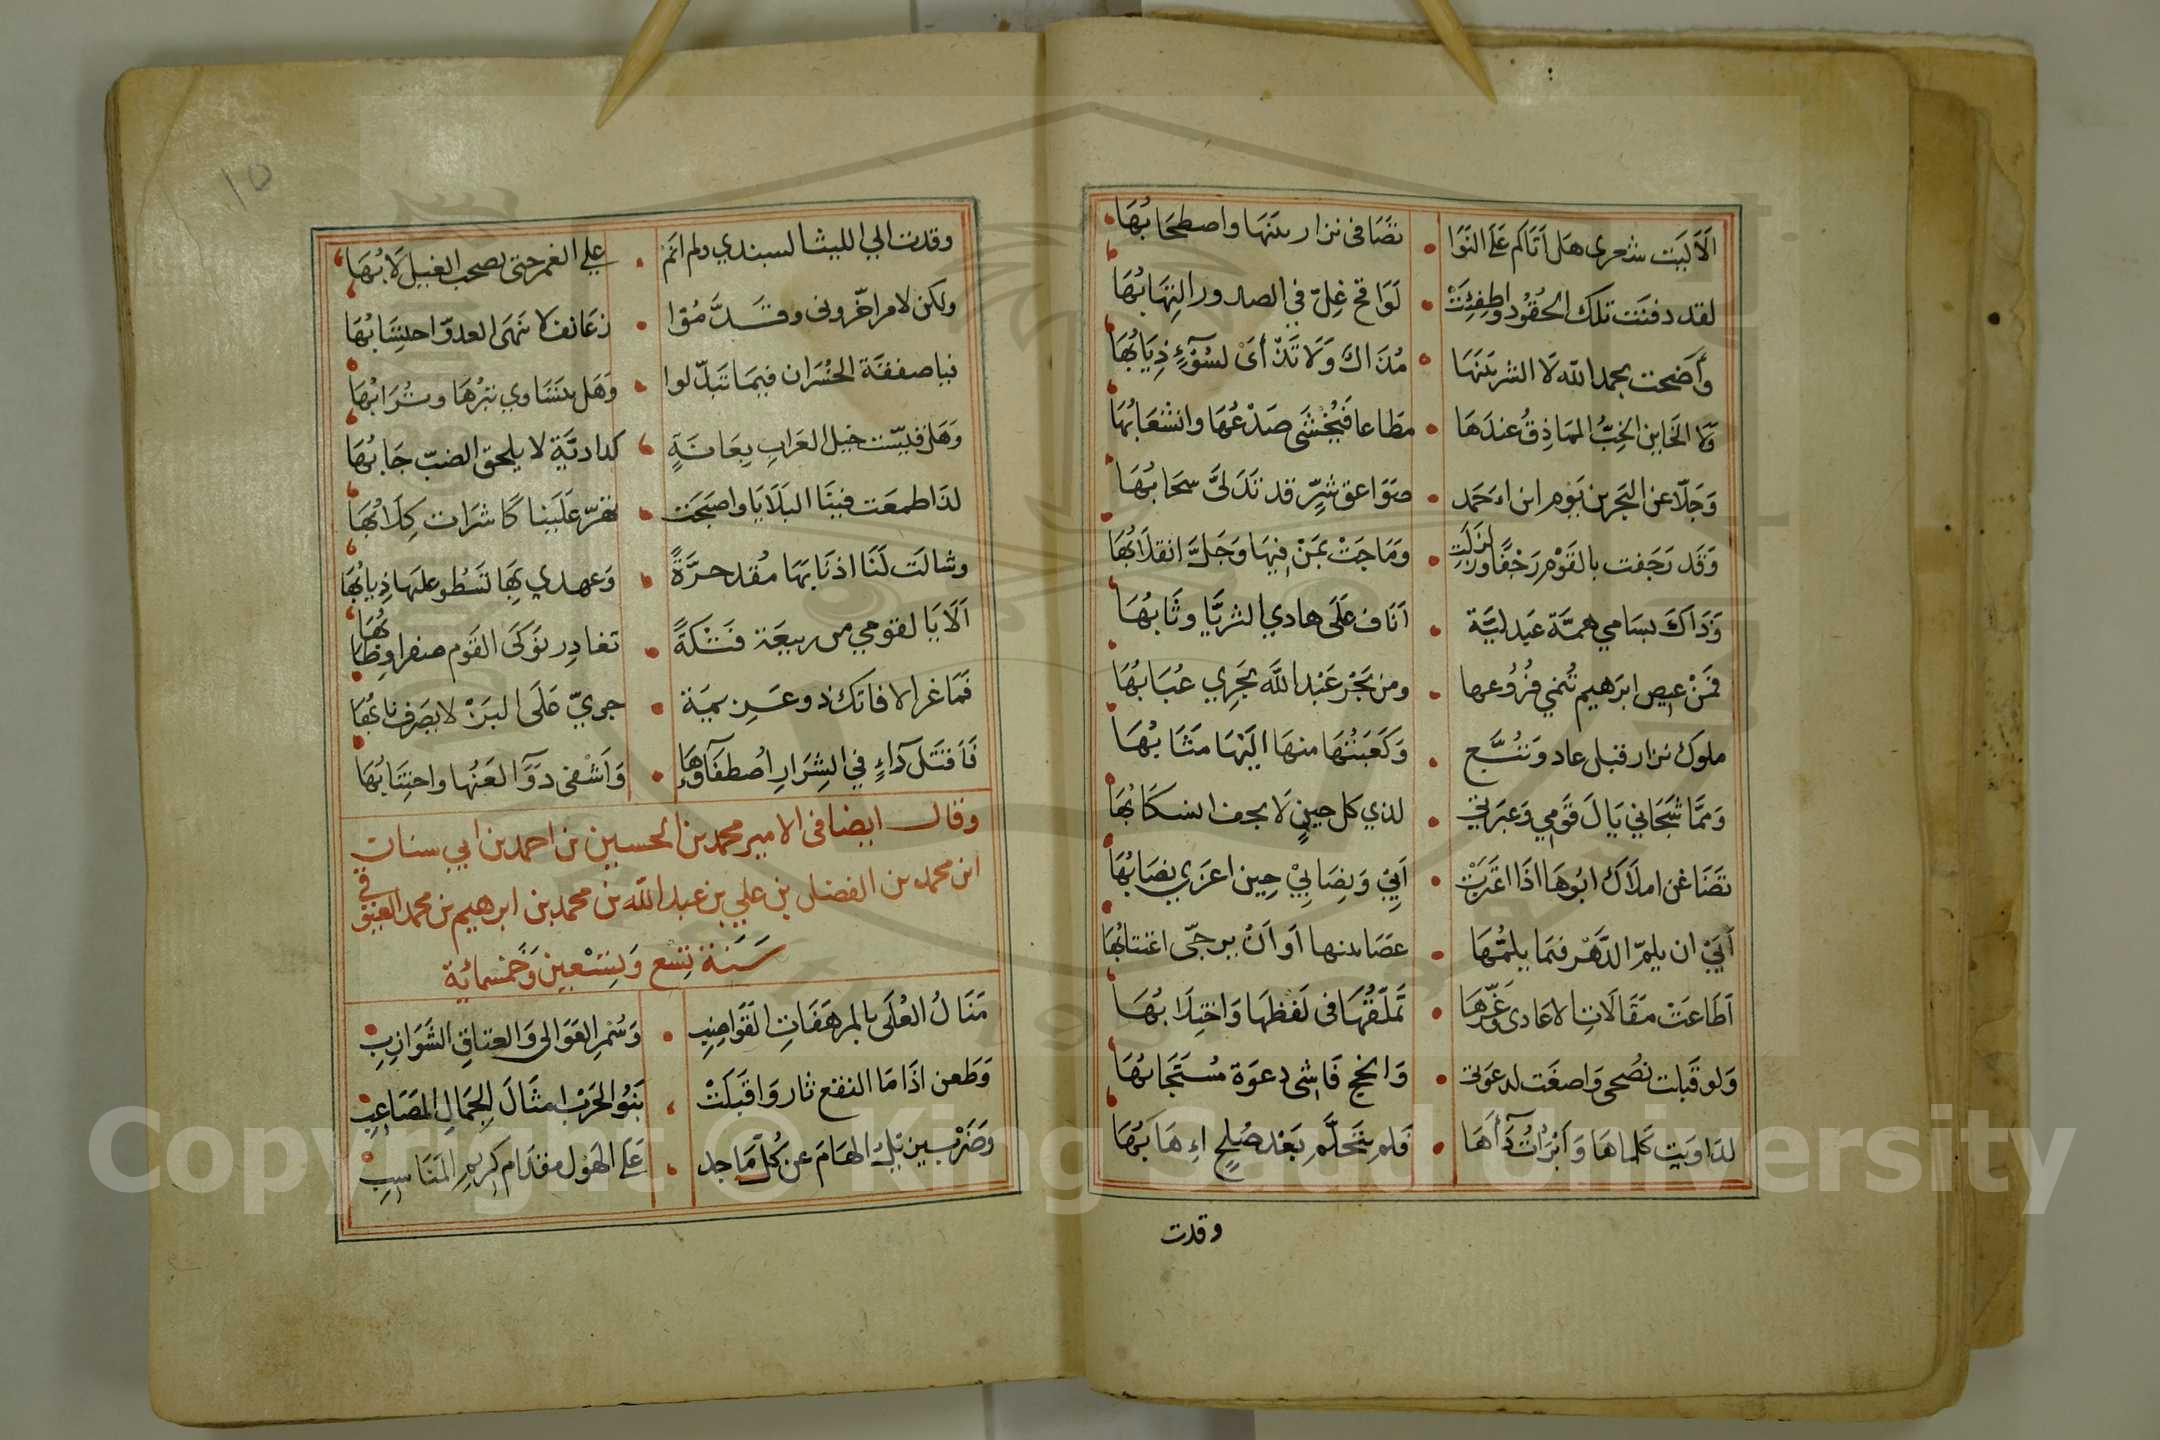 أَلَا لَيْتَ شعرى هَل اَتَاكم عَلَى النَوَا • تصَافى نزار بينَهَا واصطحَابُهَا
لقد دفنَت تلكَ الحُقُود وَاطفِئَتْ • لَوَاقح غِلّ في الصدور التِهَابُهَا
وأَضحت بحمد اللّه لَا الشر بَينَهَا • مُذَاك وَلَا تَدْأى لسُوءٍ ذِيَابُهَا
وَلَا الخَاين الخِبُّ المَمَاذِقُ عندَهَا • مطَاعا فَيُخْشَى صَدْعُهَا وانشعَابُهَا
وَجَلّا عن البَحرين يَوم ابن احمَد • صَوَاعق شرٍّ قد تَدَلىَّ سحَابُهَا
وَقَد رَجَفت بالقَوْم رَجْفًا وَزُلزلت • وَمَاجَتْ بمَنْ فيهَا وَجَلَّ انقلَابُهَا
وَذَاكَ بسَامي همَّة عَبدليَّة • اَنَاف عَلَى هادي الثريَّا وثَابُهَا
فَمنْ عيص ابرَهيم تُنمي فرُوُعها • ومن بَحْر عَبْد اللَّه يَجرِي عُبَابُهَا
ملوك نزار قبل عاد وَتُبَّع • وَكَعبَتُهَا منهَا اليْهَا مَثَابُهَا
وَممَّا شَجَاني يَالَ قَوْمي وَعبرَتي • لدي كل حينٍ لَا يجف انسكَابُهَا
تَضَاغن املَاك ابُوهَا اذَا اعْتَزَتْ • اَبِيْ وَنِصَابِيْ حِين اعزَى نصَابُهَا
اَبَيْ ان يلمّ الدَّهْر فمَا يلمّهَا • عصَا بينها اَو اَنْ يرجّى اغتتابُهَا
اَطَاعَتْ مَقَالَاتِ الاعادى وَغَرّهَا • تَملّقُهَا فى لَفظهَا وَاختِلَابُهَا
وَلو قَبلت نصُحى وَاصغَت لدعوَتى • وَانجح فَاشى دعوَة مُستَجَابُهَا
لدَاويت كَلماهَا وَاَبْرَاْتُ دَآءَهَا • فلم يَتَحلَّم بَعْد صُلحٍ اءِهَابُهَا
وقدت
١٥
وقدت الي الليث السبندي ولم انَمْ • علي الغمر حتى يصحب الغيل لَابُهَا
ولكن لامر اخّرونى وقَدَّمُوْا • زعَانف لا نهَى العدوّ احلتشَابُهَا
فيا صفقَة الخُسْرَان فيمَا تَبَدّلوا • وَهَل يتَسَاوي تبْرُهَا وتُرَابُهَا
وَهَل قيسَت خيل العرَابِ بِعَانَةٍ • كدَاديَّة لا يلحق الضبّ جَابُهَا
لذَا طمعَت فينَا البَلَايَا واصبَحَت • تهَرّ عَلَينا كَاشرَات كِلَابُهَا
وشالت لَنَا اذنَابهَا مُقْدحرَّةً • وَعهدي بِهَا تَسْطُو علَيهَا ذِيابُهَا
اَلَا يَا لقومي من ربيعَة فَتْكَةً • تغَادِر نَوكَى القَوم صفرا وِطَابُهَا
فَمَا غرّ الا فَاتك ذو عَزيمَة • جريّ عَلَى البَزْ لا يصَرف نَابُهَا
فَاَقتَل دَآءٍ في الشِرَارِ اُصطفَآؤهَا • وَاَشْفى دَوَآ العَنُهَا واجتنَابُهَا
وقال ايضا فى الامير محمد بن الحسين بن احمد بن ابي سنان
ابن محمد بن الفضل بن علي بن عبد اللّه بن محمد بن ابرهيم بن محمد العيق في
سَنَة تِسْع وَتِسْعِين وَخَمسمائة
مَنَالُ العُلَى بالمرهَفَاتِ القَوَاضِبِ • وَسُمْرِ العَوَالى وَالعتاقِ الشَوَازِبِ
وَطَعن اذَا مَا النقع ثار وَاقبَلَتْ • بَنُوُ الحَرْب امثَالَ الجِمَالِ المصَاعِبِ
وضَرْب يبين بَلك الهَامَ عن كُلّ مَاجد • عَلى الهَوْل مقدَام كريمِ المَنَاسِبِ